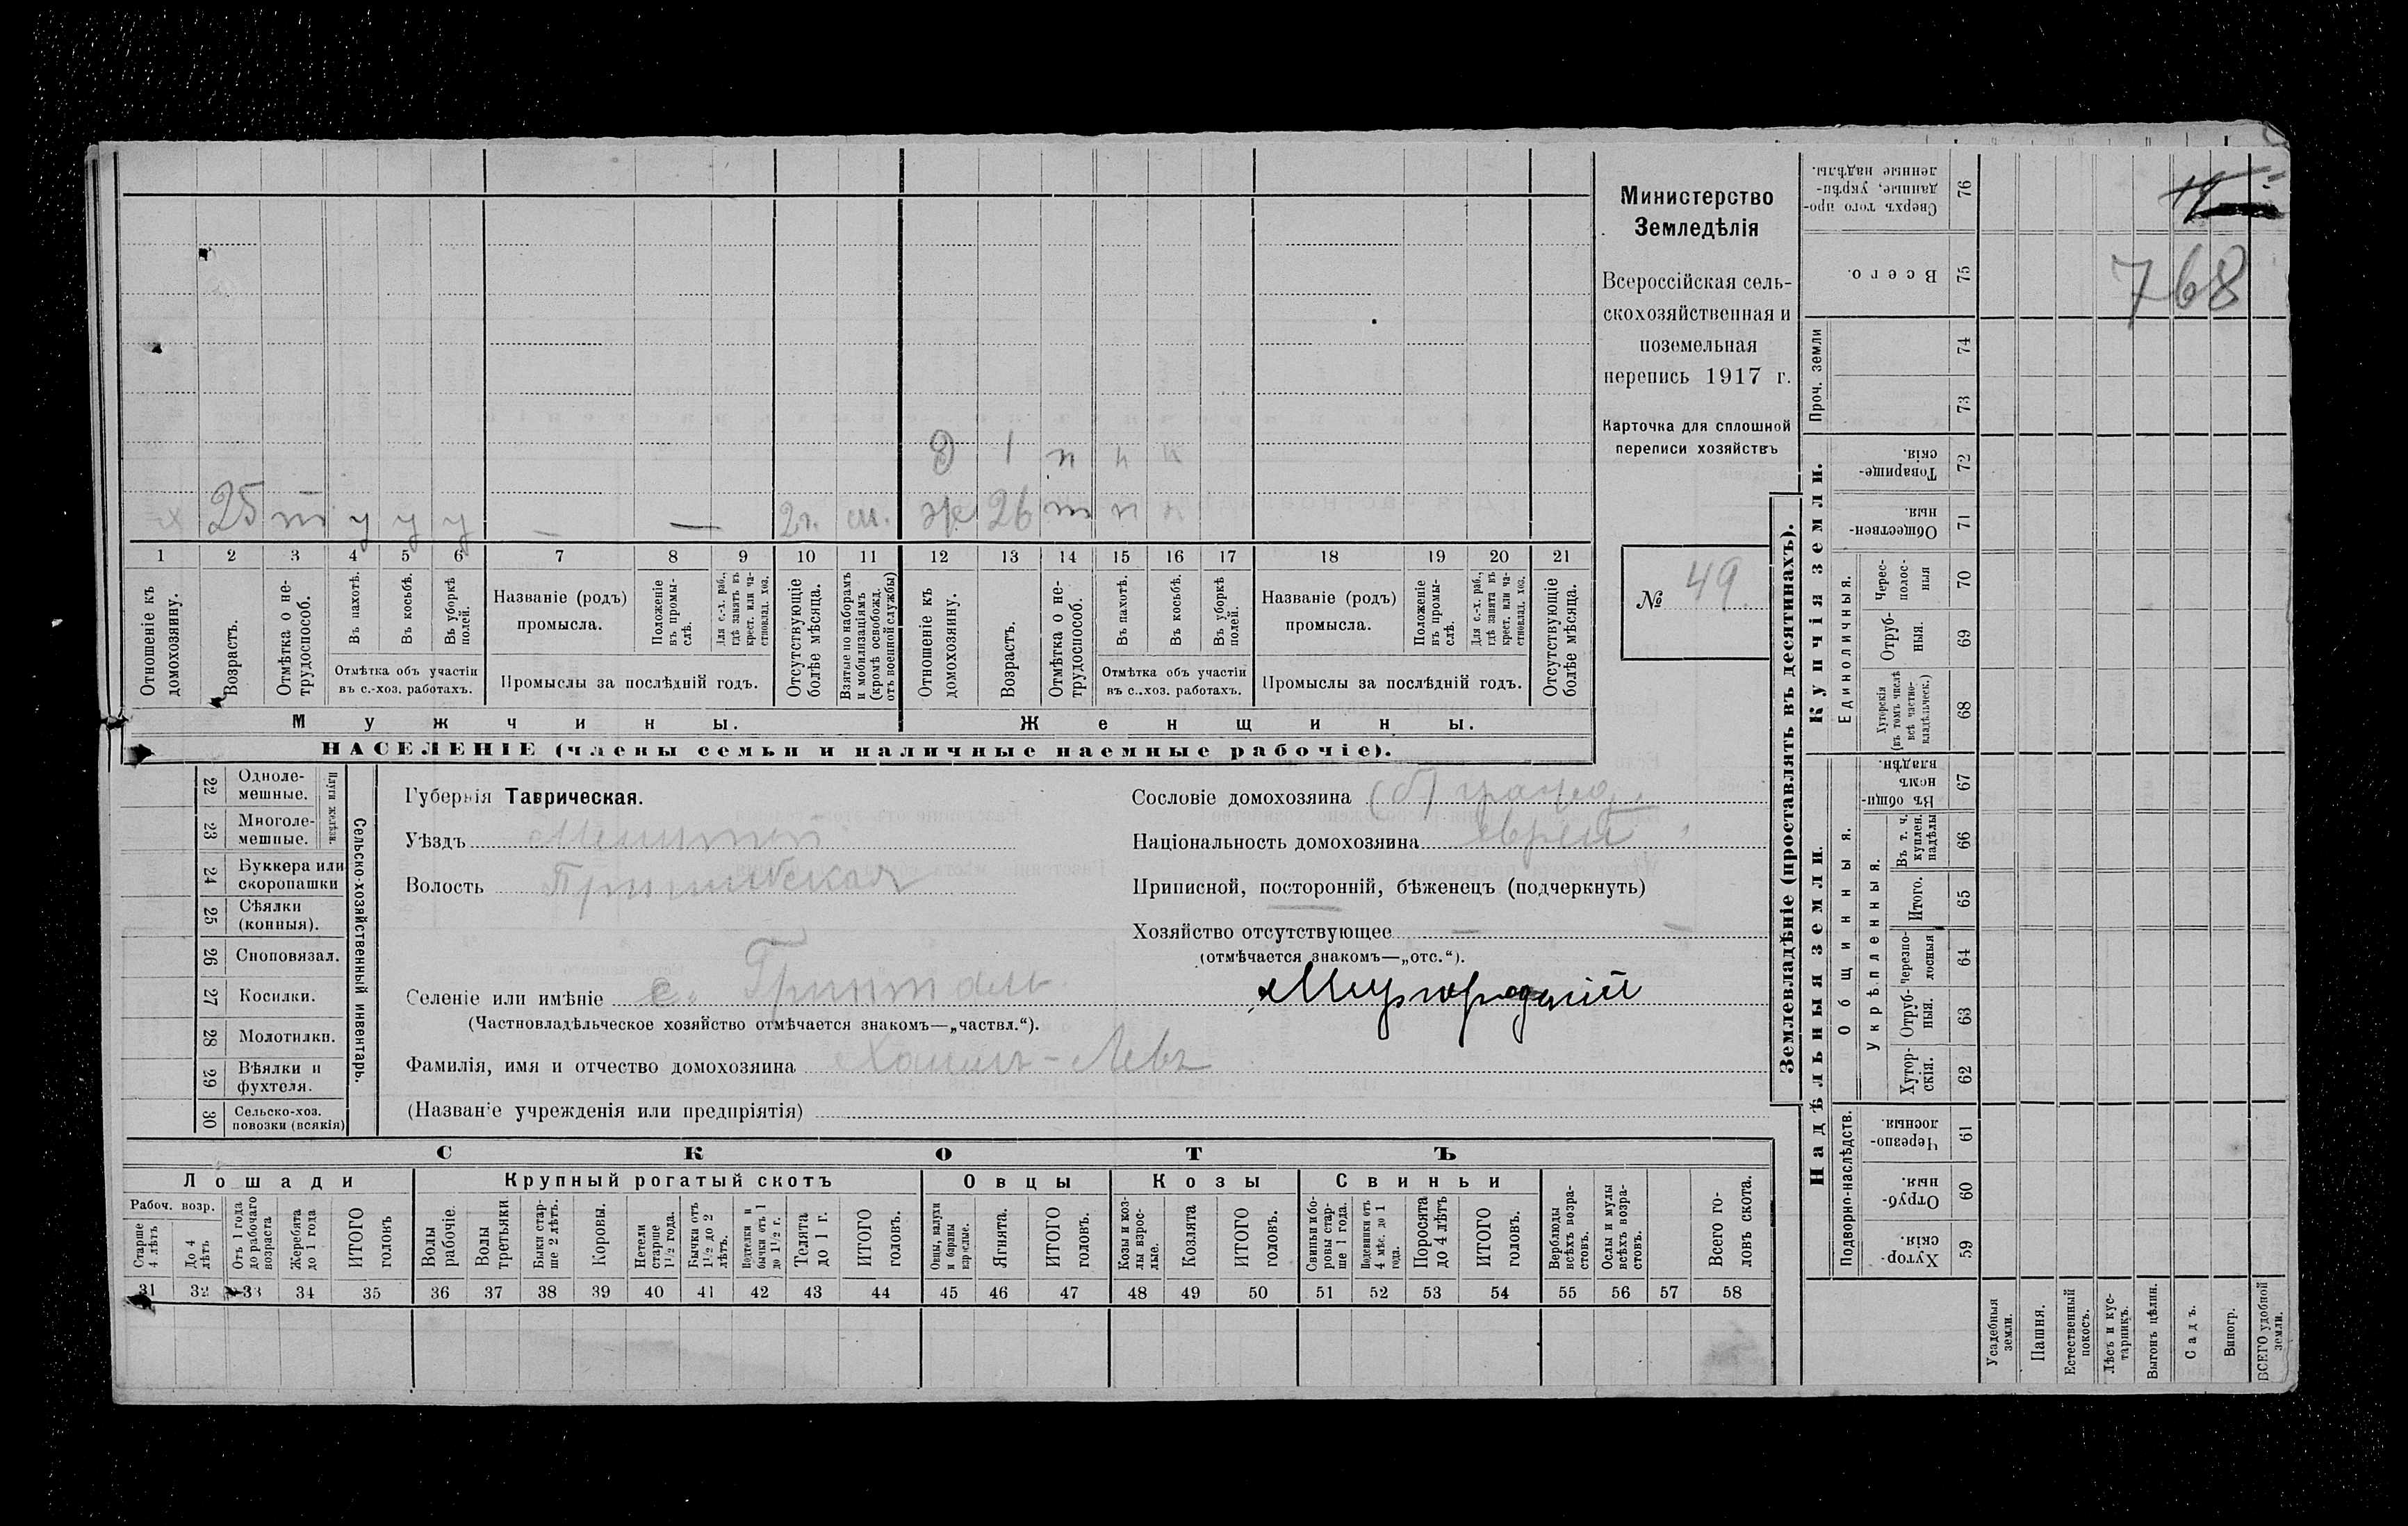 Министерство
Земледѣлія
Всероссійская сель-
скохозяйственная и
поземельная
перепись 1917 г.
Карточка для сплошной
переписи хозяйствъ
№ 49.
Д 1 н н н
25 т у у у — — 2 г. ж 26 т н н
1 2 3 4 5 6 7 8 9 10 11 12 13 14 15 16 17 18 19 20 21
Отношеніе къ домохозяину.
Возрастъ.
Отмѣтка о не-трудоспособ.
Въ пахотѣ.
Въ косьбѣ.
Въ уборкѣ полей.
Отмѣтка объ участіи
въ с.-хоз. работахъ.
Названіе (родъ)
промысла.
Положеніе въ промы-слѣ.
Для с.-х. раб., гдѣ занятъ въ крест. или ча-стновлад. хоз.
Промыслы за послѣдній годъ.
Отсутствующіе болѣе мѣсяца.
Взятые по наборамъ и мобилизаціямъ (кромѣ освобожд. отъ военной службы)
Отношеніе къ домохозяину.
Возрастъ.
Отмѣтка о не-трудоспособ.
Въ пахотѣ.
Въ косьбѣ.
Въ уборкѣ полей.
Отмѣтка объ участіи
въ с.-хоз. работахъ.
Названіе (родъ)
промысла.
Положеніе въ промы-слѣ.
Для с.-х. раб., гдѣ занята въ крест. или ча-стновлад. хоз.
Промыслы за послѣдній годъ.
Отсутствующіе болѣе мѣсяца.
Мужчины. Женщины.
НАСЕЛЕНІЕ (члены семьи и наличные наемные рабочіе).
22 Одноле-мешные.
23 Многоле-мешные.
Плуги желѣзн.
24 Буккера или скоропашки
25 Сѣялки (конныя).
26 Сноповязал.
27 Косилки.
28 Молотилки.
29 Вѣялки и фухтеля.
30 Сельско-хоз. повозки (всякія)
Сельско-хозяйственный инвентарь.
Губернія Таврическая.
Уѣздъ Мелитоп
Волость Пришибская
Селеніе или имѣніе с. Гринталь
(Частновладѣльческое хозяйство отмѣчается знакомъ—„частвл.“).
Фамилія, имя и отчество домохозяина Ханинъ-Левъ
(Названіе учрежденія или предпріятія)
Сословіе домохозяина
Національность домохозяина еврей
Приписной, посторонній, бѣженецъ (подчеркнуть)
Хозяйство отсутствующее —
(отмѣчается знакомъ—„отс.“).
СКОТЪ
Лошади Крупный рогатый скотъ Овцы Козы Свиньи
Рабоч. возр.
Старше 4 лѣтъ
До 4 лѣтъ
Отъ 1 года до рабочаго возраста
Жеребята до 1 года
ИТОГО головъ
Волы рабочіе.
Волы третьяки
Быки стар-ше 2 лѣтъ.
Коровы.
Нетели старше 1½ года.
Бычки отъ 1½ до 2 лѣтъ.
Подтелки и бычки отъ 1 до 1½ г.
Телята до 1 г.
ИТОГО головъ.
Овцы, валухи и бараны взрослые.
Ягнята.
ИТОГО головъ.
Козы и коз-лы взрос-лые.
Козлята
ИТОГО головъ.
Свиньи и бо-ровы стар-ше 1 года.
Подсвинки отъ 4 мѣс. до 1 года.
Поросята до 4 лѣтъ
ИТОГО головъ.
Верблюды всѣхъ возра-стовъ.
Ослы и мулы всѣхъ возра-стовъ.
Всего го-ловъ скота.
31 32 33 34 35 36 37 38 39 40 41 42 43 44 45 46 47 48 49 50 51 52 53 54 55 56 57 58
Землевладѣніе (проставлять въ десятинахъ).
768
Сверхъ того про-данные, укрѣп-ленные надѣлы. 76
Всего. 75
Проч. земли
74
73
Купчія земли.
Товарище-скія 72
Обществен-ныя. 71
Единоличныя.
Черес-полос-ныя 70
Отруб-ныя. 69
Хуторскія (въ томъ числѣ всѣ частно-владѣльческ.) 68
Надѣльныя земли.
Общинныя.
Въ общи-номъ владѣн. 67
Укрѣпленныя.
Въ т. ч. куплен. надѣлы 66
Итого. 65
Черезпо-лосныя 64
Отруб-ныя. 63
Хутор-скія. 62
Подворно-наслѣдств.
Черезпо-лосныя. 61
Отруб-ныя. 60
Хутор-скія. 59
Усадебныя земли.
Пашня.
Естественный покосъ.
Лѣсъ и кус-тарникъ.
Выгонъ цѣлин.
Садъ.
Виногр.
ВСЕГО удобной земли.